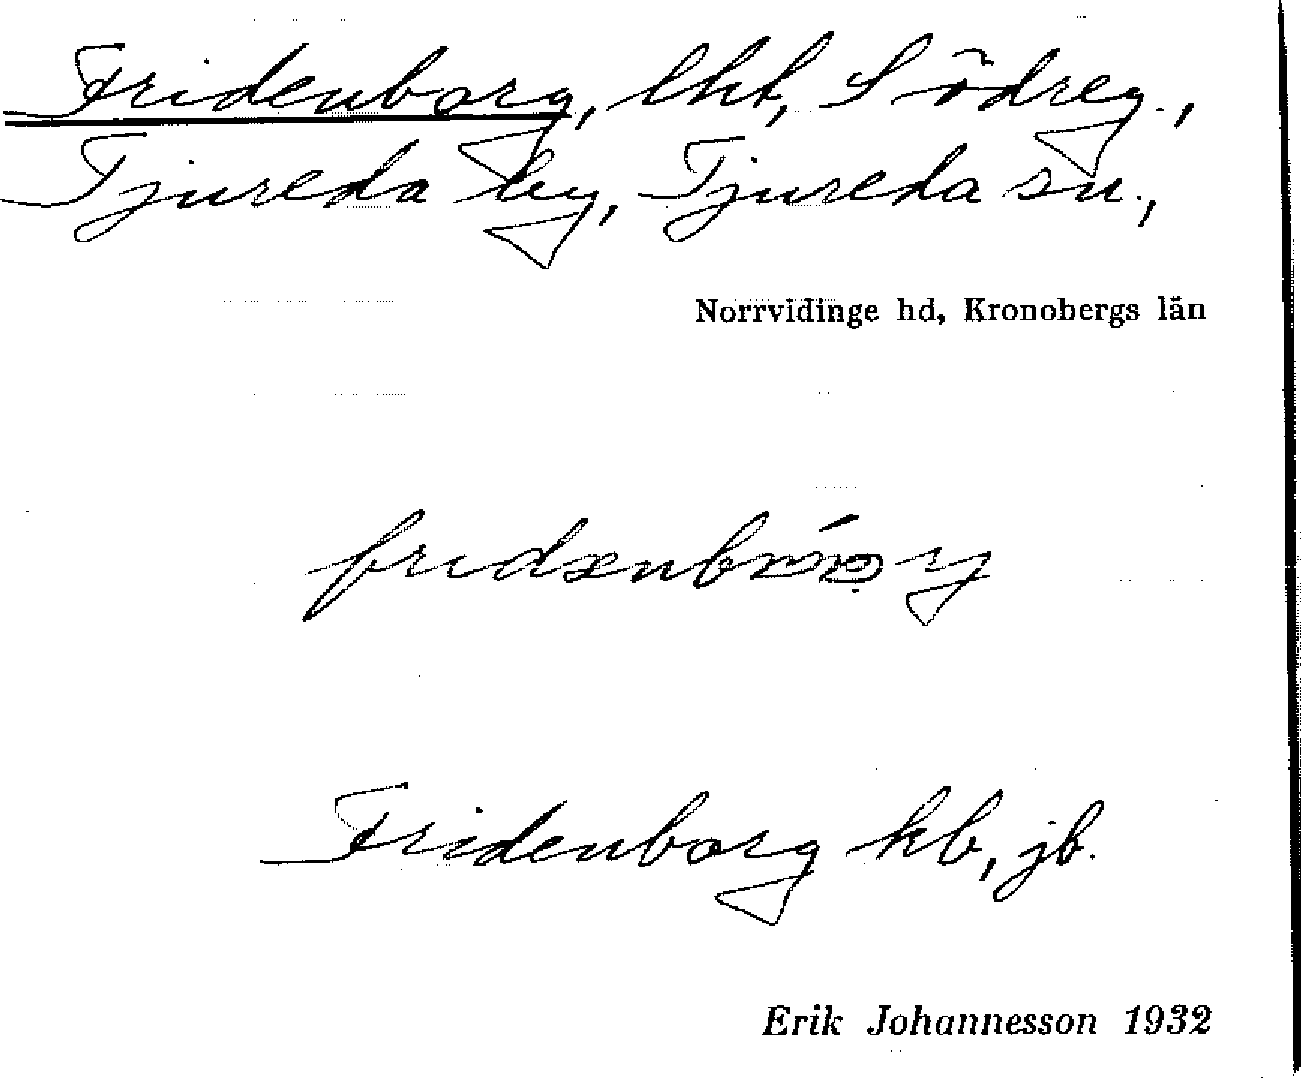 Fridenborg, lht, Södreg.,
Tjureda by, Tjureda sn.,
Norrvidinge hd, Kronobergs län
Fridenborg hb, jb.
Erik Johannesson 1932